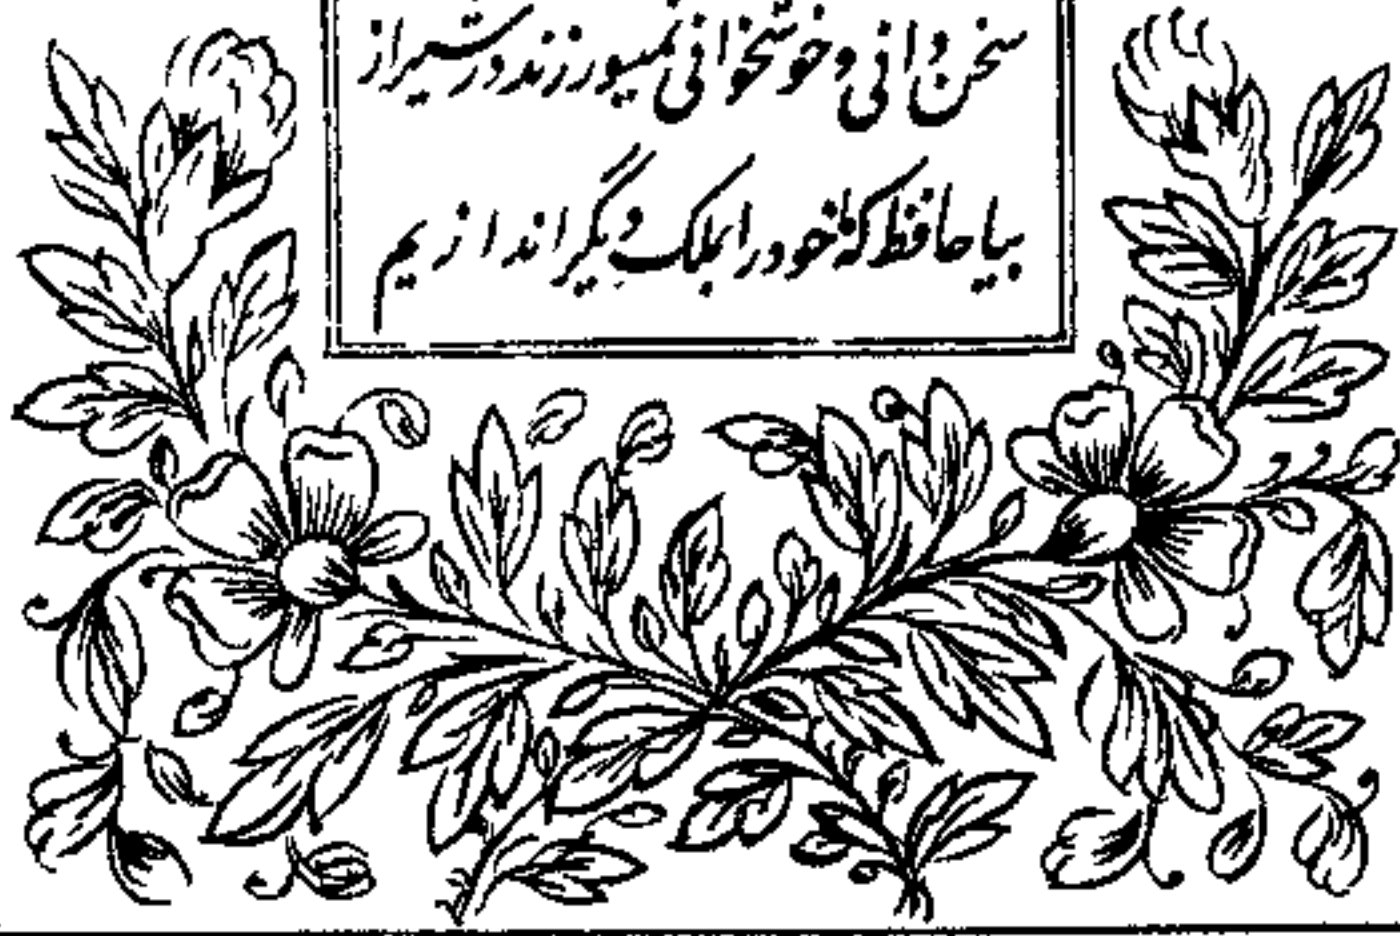 سخن دانی و خوشخوانی نمیورزند در شیراز
بیا حافظ که تا خود را بملک دیگر اندازیم